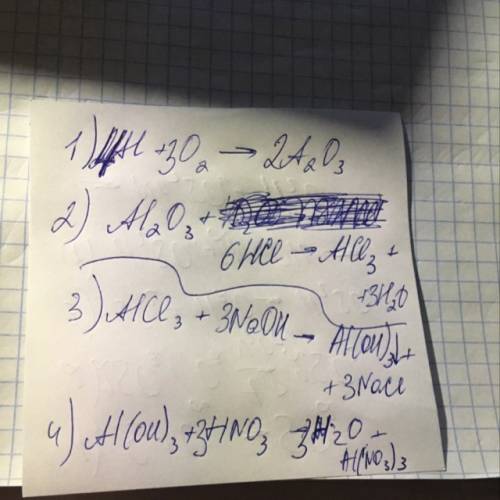 1) 4Al + 3O₂ → 2A₂O₃
2) Al₂O₃ +
6HCl → AlCl₃ +
+3H₂O
3) AlCl₃ + 3NaOH → Al(OH)₃↓ +
+ 3NaCl
4) Al(OH)₃ + 3HNO₃ 3H₂O +
Al(NO₃)₃